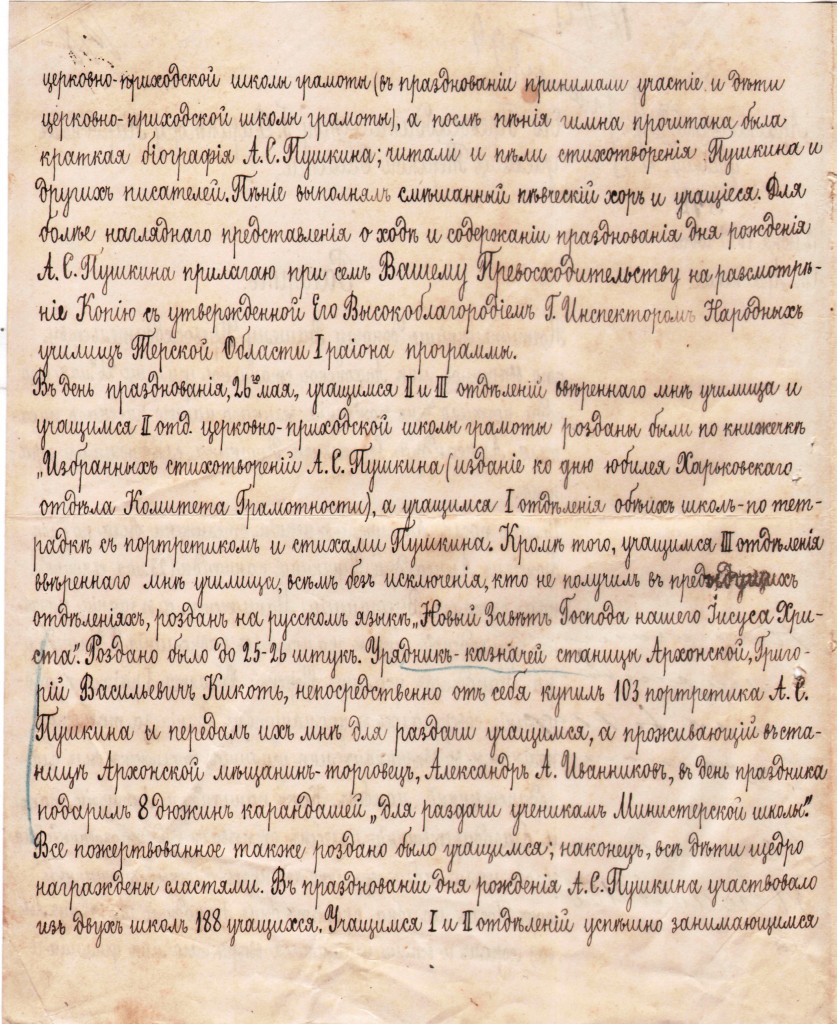 церковно-приходской школы грамоты (въ празднованіи принимали участіе и дѣти
церковно-приходской школы грамоты), а послѣ пѣнія гимна прочитана была
краткая біографія А.С.Пушкина; читали и пѣли стихотворенія Пушкина и
другихъ писателей. Пѣніе выполнялъ смѣшанный пѣвческій хоръ и учащіеся. Для
болѣе нагляднаго представленія о ходѣ и содержаніи празднованія дня рожденія
А.С.Пушкина прилагаю при семъ Вашему Превосходительству на разсмотрѣ-
ніе Копію съ утвержденной Его Высокоблагородіемъ Г. Инспекторомъ Народныхъ
училищъ Терской Области I раіона программы.
Въ день празднованія, 26го мая, учащимся II и III отдѣленій ввѣреннаго мнѣ училища и
учащимся II отд. церковно-приходской школы грамоты розданы были по книжечкѣ
„Избранныхъ стихотвореній А.С.Пушкина (изданіе ко дню юбилея Харьковскаго
отдѣла Комитета Грамотности), а учащимся I отдѣленія обѣихъ школъ-по тет-
радкѣ съ портретикомъ и стихами Пушкина. Кромѣ того, учащимся III отдѣленія
ввѣреннаго мнѣ училища, всѣмъ безъ исключенія, кто не получилъ въ предыдущихъ
отдѣленіяхъ, розданъ на русскомъ языкѣ „Новый Завѣтъ Господа нашего Іисуса Хри-
ста". Роздано было до 25-26 штукъ. Урядникъ-казначей станицы Архонской, Григо-
рій Васильевичъ Кикоть, непосредственно отъ себя купилъ 103 портретика А.С.
Пушкина ы передалъ ихъ мнѣ для раздачи учащимся, а проживающій въ ста-
ницѣ Архонской мѣщанинъ-торговецъ, Александръ А. Иванниковъ, въ день праздника
подарилъ 8 дюжинъ карандашей „для раздачи ученикамъ Министерской школы".
Все пожертвованное также роздано было учащимся; наконецъ, всѣ дѣти щедро
награждены сластями. Въ празднованіи дня рожденія А.С.Пушкина участвовало
изъ двухъ школъ 188 учащихся. Учащимся I и II отдѣленій успѣшно занимающимся